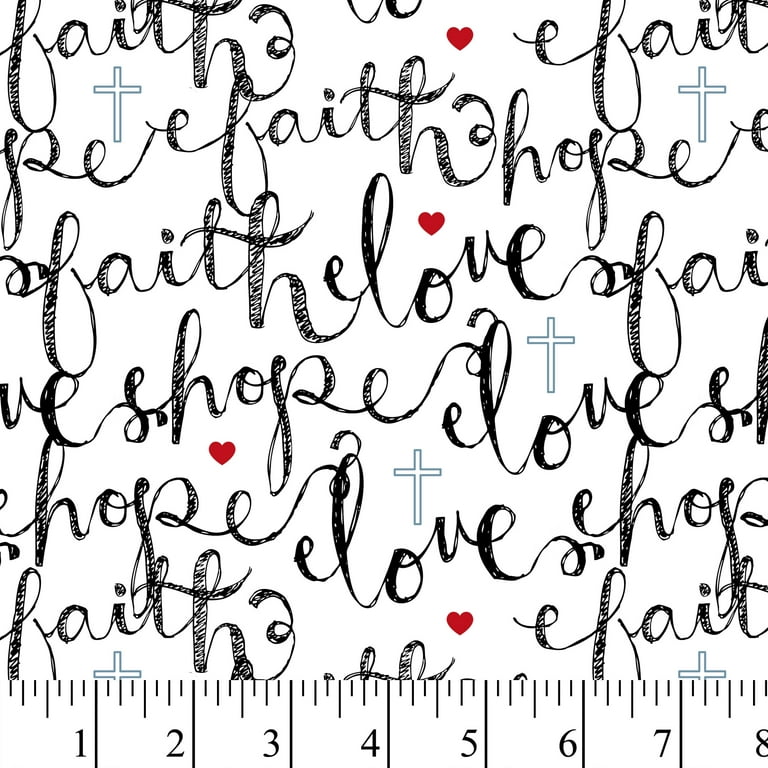 faith
faith
faith hope
hope
faith love
faith
love
hope
love
hope
love
hope
faith
faith
1 2 3 4 5 6 7 8